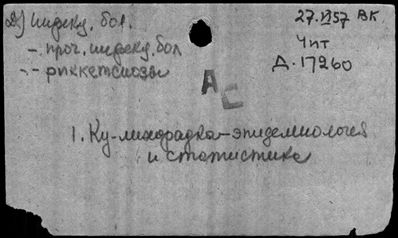 2) инфекц. бол.
- проч. инфекц. бол
-- риккетсиозы
27.VI57 ВК.
Чит
Д.17260
АС
1. Ку-лихорадка-эпидемиология
и статистика